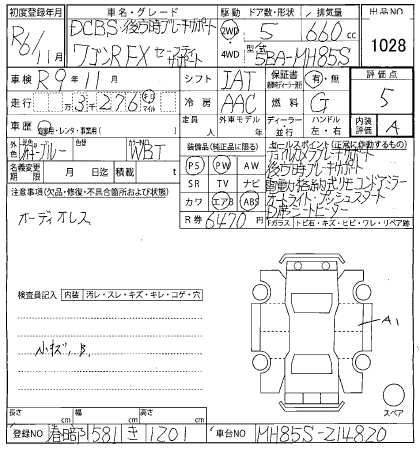 初度登録年月
車名・グレード
駆動
ドア数・形状
排気量
出品NO
R6/11月
DCBS・後方時ブレーキサポート
ワゴンR FX セーフティサポート
2WD
4WD
5
660 cc
型式
5BA-MH85S
1028
車検
R9年11月
シフト
IAT
保証書
有・無
評価点
走行
3万276
キロ
マイル
冷房
AAC
燃料
G
5
車歴
自家用・レンタ・事業用( )
定員
人
外車モデル
年
ディーラー
並行
ハンドル
左・右
内装評価
A
外色
ブルー
色替
カラーNO
WBT
名義変更期限
月
日迄
積載
t
装備品(純正品に限る)
PS
PW
AW
SR
TV
ナビ
カワ
エアB
ABS
R券
6470円
セールスポイント(正常に作動するもの)
後方時ブレーキサポート
電動格納式リモコンドアミラー
オートライト・プッシュスタート
D席シートヒーター
注意事項(欠品・修復・不具合箇所および状態)
オーディオレス
Fガラス
トビ石・キズ・ヒビ・ワレ・リペア跡
検査員記入
内装
汚レ・スレ・キズ・キレ・コゲ・穴
小キズ、B、
A1
スペア
長さ
cm
幅
cm
高さ
cm
登録NO
春日部 581 き 1201
車台NO
MH85S-214820